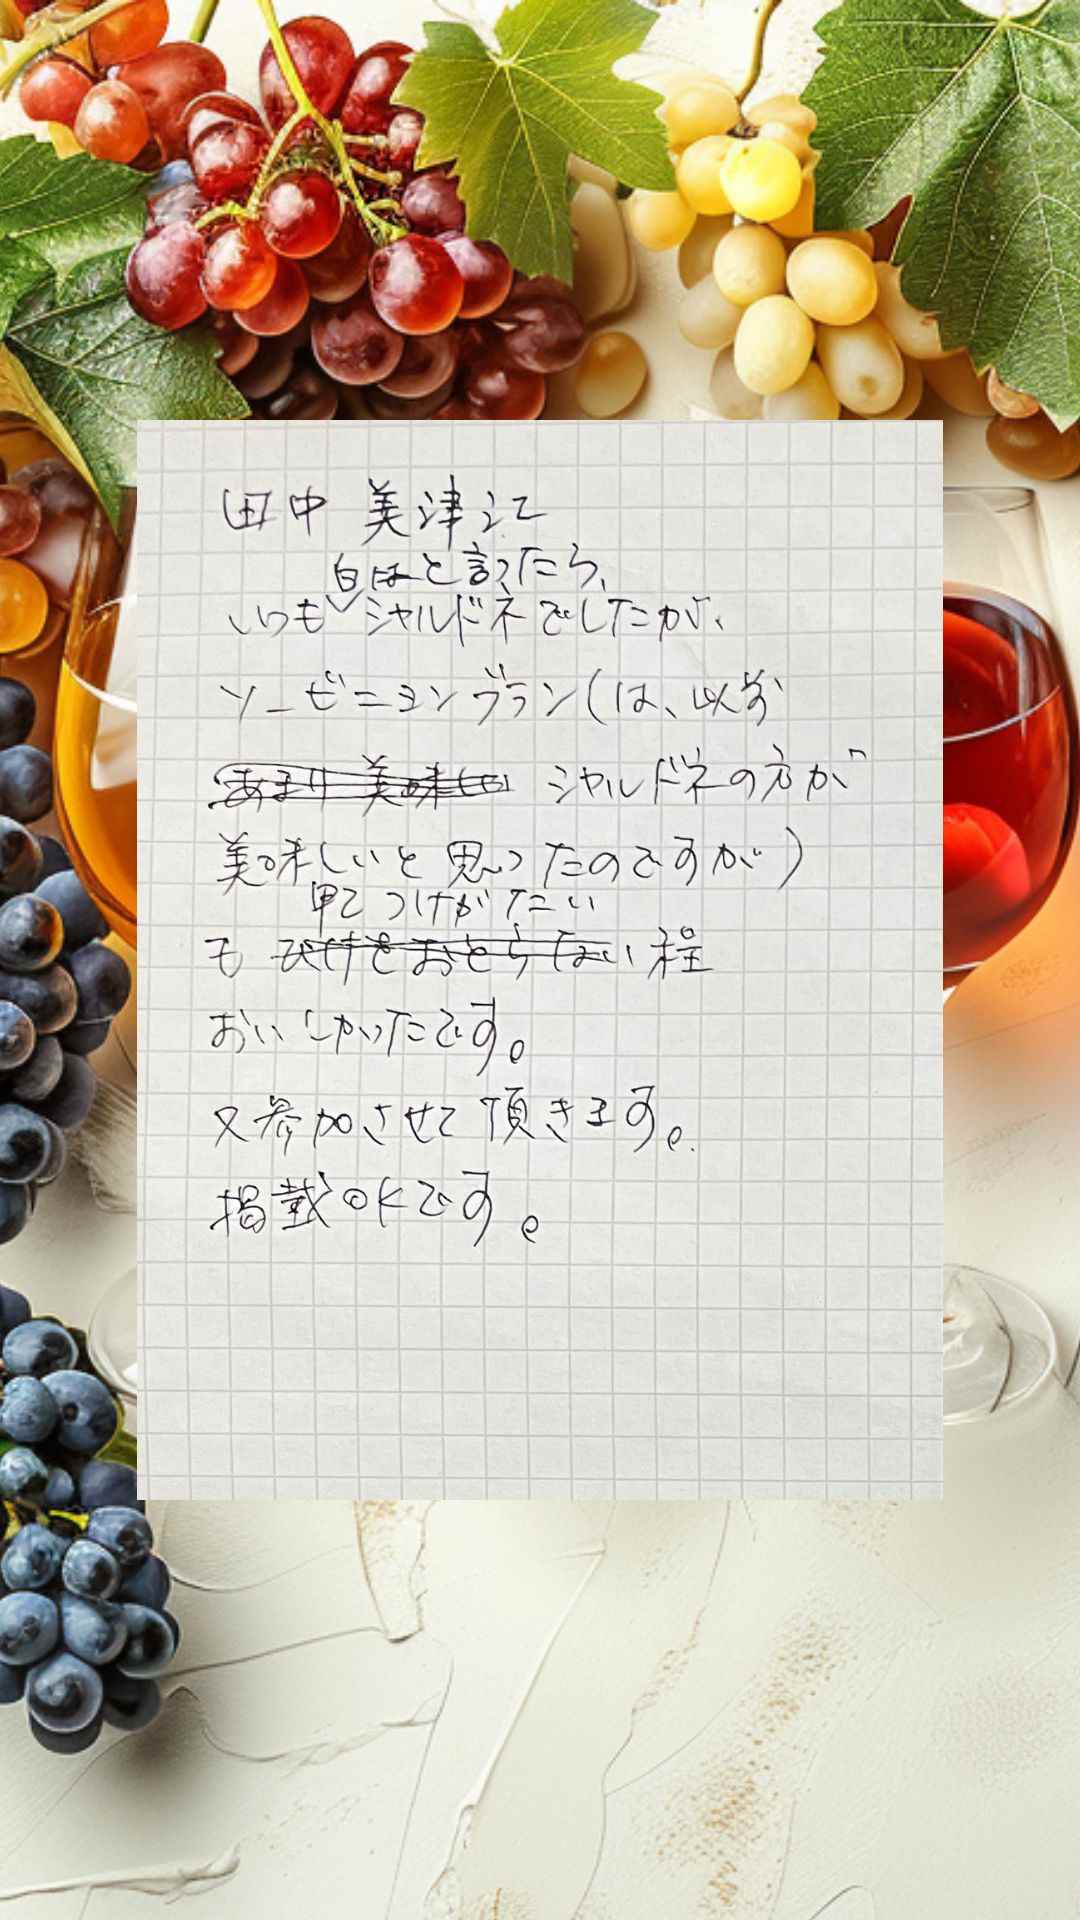 田中 美津江
白はと言ったら、
いつもシャルドネでしたが、
ソービニヨンブラン(は、以前
あまり美味しい シャルドネの方が
美味しいと思ったのですが)
甲乙つけがたい
も ひけをおとらない程
おいしかったです。
又参加させて頂きます。
掲載OKです。